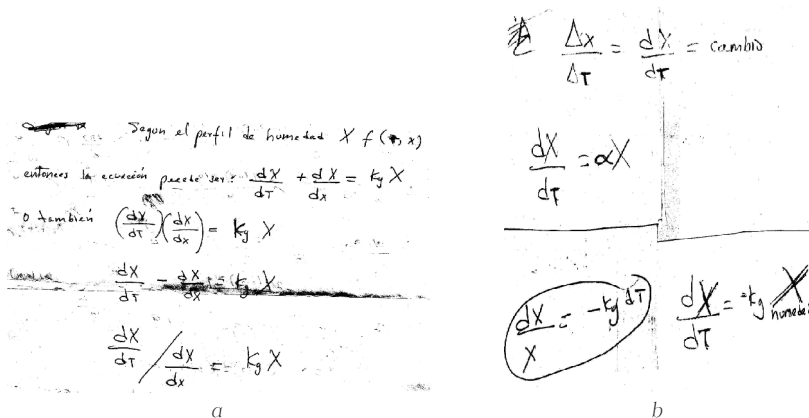 Segun el perfil de humedad X f(T, x)
entonces la ecuación puede ser: dX/dT + dX/dx = kg X
o también (dX/dT)(dX/dx) = kg X
dX/dT - dX/dx = kg X
dX/dT / dX/dx = kg X
a
Δx/ΔT = dX/dT = cambio
dX/dT = αX
dX/X = -kg dT
dX/dT = -kg X
humedad
b